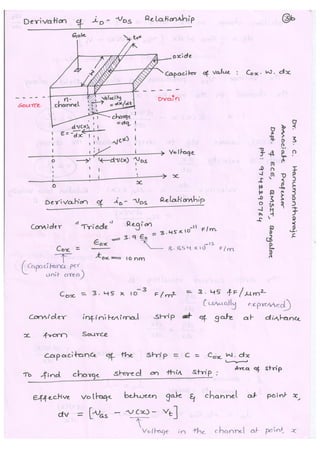 Derivation of iD - VDS Relationship
3b
Gate
tox
oxide
Capacitor of value : Cox . W . dx
Source
n-
channel
Velocity
= dx/dt
Drain
charge
= dq
E = dV(x)
dx
V(x)
Voltage
0
dV(x) VDS
0
x
x
Dr. M. C. Hanumantharaju
Associate Professor
Dept. of ECE, BMSIT, Bangalore
Ph: 9742290764
Derivation of iD - VDS Relationship
Consider "Triode" Region
Cox = Eox = 3.9 E0 = 3.45 x 10^-11 F/m
8.854 x 10^-12 F/m
tox = 10 nm
(Capacitance per
unit area)
Cox = 3.45 x 10^-3 F/m² = 3.45 fF/µm²
(usually expressed)
Consider infinitesimal strip of gate at distance
x from Source
Capacitance of the strip = C = Cox W. dx
Area of strip
To find charge stored on this strip :
Effective voltage between gate & channel at point x,
dv = [VGS - V(x) - Vt]
Voltage in the channel at point x